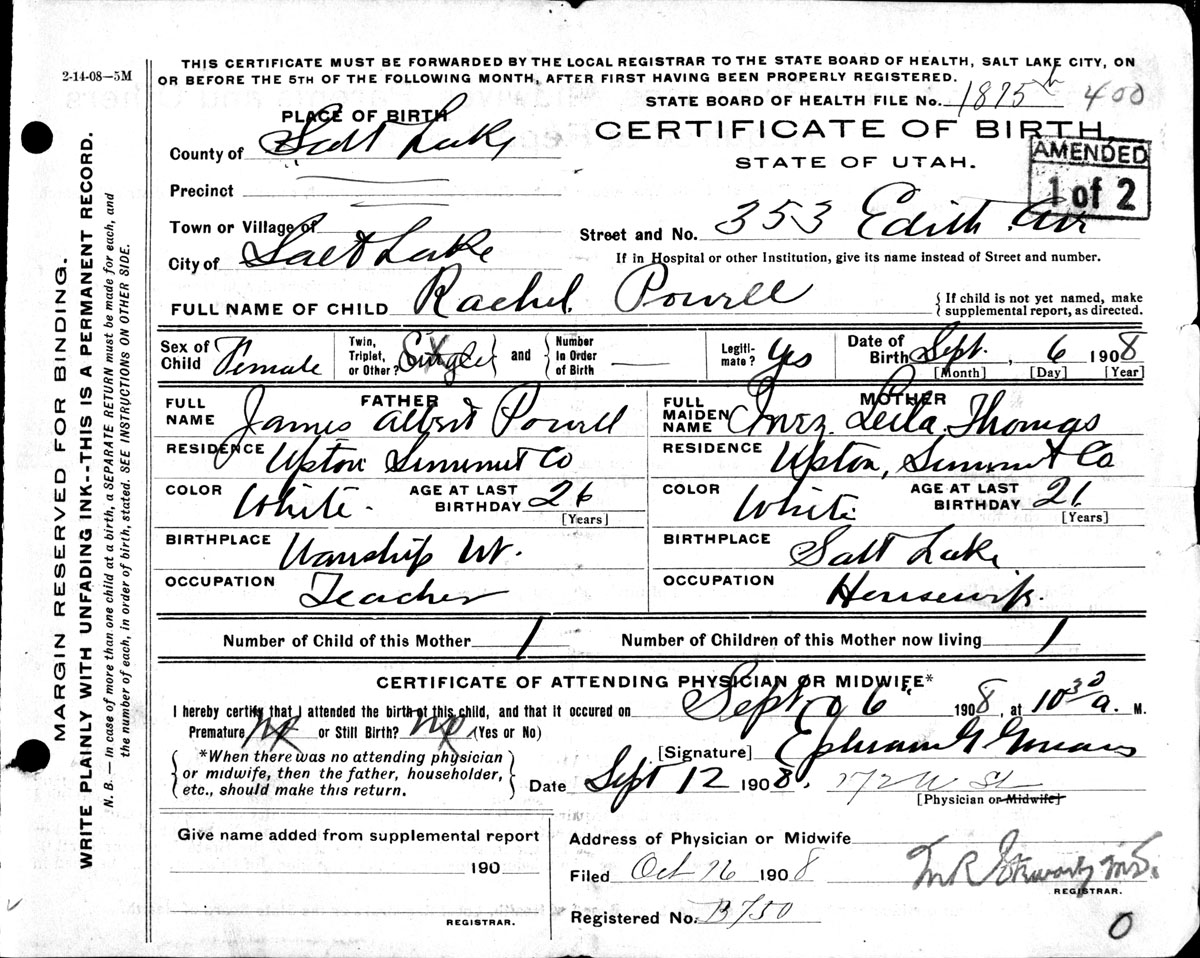 2-14-08—5M
THIS CERTIFICATE MUST BE FORWARDED BY THE LOCAL REGISTRAR TO THE STATE BOARD OF HEALTH, SALT LAKE CITY, ON
OR BEFORE THE 5TH OF THE FOLLOWING MONTH, AFTER FIRST HAVING BEEN PROPERLY REGISTERED.
STATE BOARD OF HEALTH FILE No. 1875 h 400
PLACE OF BIRTH
CERTIFICATE OF BIRTH.
STATE OF UTAH.
AMENDED
1 of 2
County of Salt Lake
Precinct
Town or Village of
Street and No. 353 Edith Av
City of Salt Lake
If in Hospital or other Institution, give its name instead of Street and number.
FULL NAME OF CHILD Rachel Powell
{ If child is not yet named, make supplemental report, as directed.
Sex of Child Female
Twin, Triplet, or Other? Single } and { Number In Order of Birth
Legitimate? Yes
Date of Birth Sept. , 6 1908
[Month] [Day] [Year]
FATHER
FULL NAME James Albert Powell
RESIDENCE Upton Summit Co
COLOR White. AGE AT LAST BIRTHDAY 26
[Years]
BIRTHPLACE Wanship Ut.
OCCUPATION Teacher
MOTHER
FULL MAIDEN NAME Inez Leila Thomas
RESIDENCE Upton, Summit Co
COLOR White AGE AT LAST BIRTHDAY 21
[Years]
BIRTHPLACE Salt Lake
OCCUPATION Housewife
Number of Child of this Mother 1 Number of Children of this Mother now living 1
CERTIFICATE OF ATTENDING PHYSICIAN OR MIDWIFE*
I hereby certify that I attended the birth of this child, and that it occured on Sept 6 1908, at 10 30 a. M.
Premature No or Still Birth? No (Yes or No)
[Signature] Ephraim G
*When there was no attending physician
or midwife, then the father, householder,
etc., should make this return.
Date Sept 12 1908. 172 W St
[Physician or Midwife]
Give name added from supplemental report
190
REGISTRAR.
Address of Physician or Midwife
Filed Oct 26 1908
M.D.
REGISTRAR.
Registered No. B750
0
MARGIN RESERVED FOR BINDING.
WRITE PLAINLY WITH UNFADING INK--THIS IS A PERMANENT RECORD.
N. B.—In case of more than one child at a birth, a SEPARATE RETURN must be made for each, and
the number of each, in order of birth, stated. SEE INSTRUCTIONS ON OTHER SIDE.